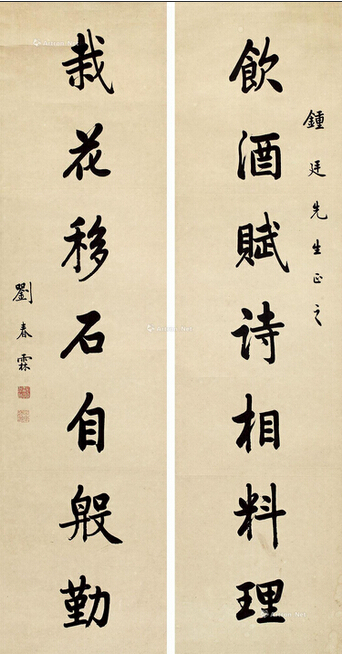 鍾廷先生正之
飲酒賦詩相料理
栽花移石自般勤
劉春霖